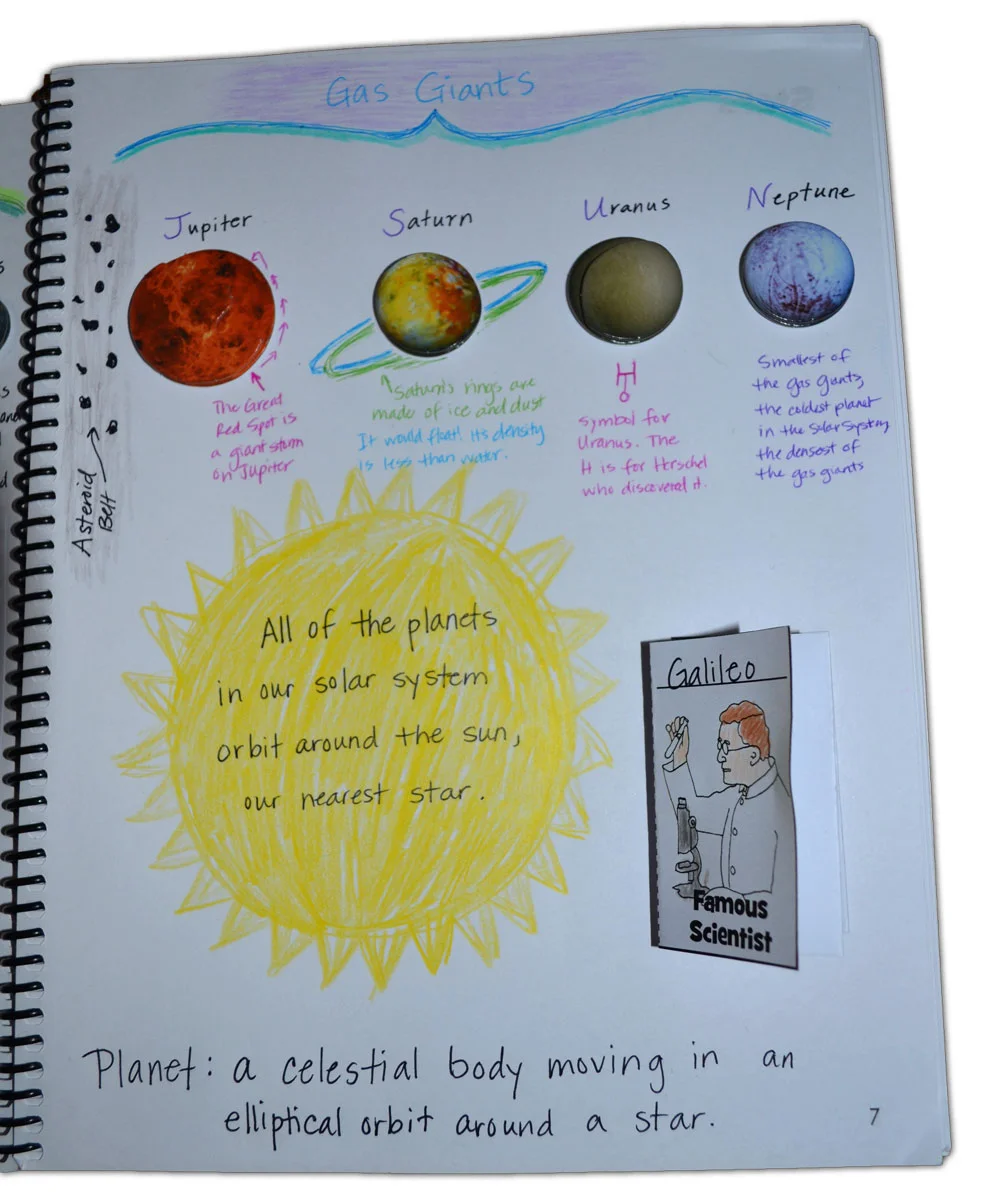 Gas Giants
Jupiter
Saturn
Uranus
Neptune
The Great
Red Spot is
a giant storm
on Jupiter
Saturn's rings are
made of ice and dust
It would float! Its density
is less than water.
symbol for
Uranus. The
H is for Herschel
who discovered it.
Smallest of
the gas giants,
the coldest planet
in the Solar System,
the densest of
the gas giants
Asteroid
Belt
All of the planets
in our solar system
orbit around the sun,
our nearest star.
Galileo
Famous
Scientist
Planet: a celestial body moving in an
elliptical orbit around a star.
7